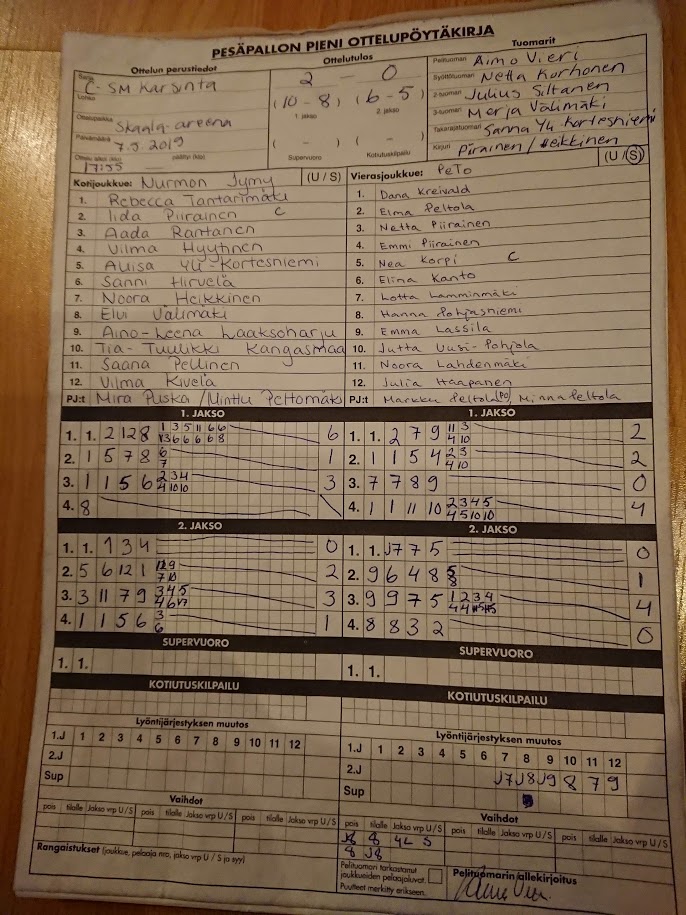 PESÄPALLON PIENI OTTELUPÖYTÄKIRJA
Ottelun perustiedot
Ottelutulos
Tuomarit
Sarja
C-SM Karsinta
Lohko
Ottelupaikka
Skaala-areena
Päivämäärä
7.9.2019
17:55
2 - 0
(10-8) (6-5)
1. jakso 2. jakso
( - ) ( - )
Supervuoro Kotiutuskilpailu
Pelituomari Aimo Vieri
Syöttötuomari Netta Korhonen
2-tuomari Julius Siltanen
3-tuomari Merja Välimäki
Takarajatuomari Sanna Yli-Kortesniemi
Kirjuri Piirainen / Heikkinen
Kotijoukkue: Nurmon Jymy (U / S)
1. Rebecca Tantarimäki
2. Iida Piirainen C
3. Aada Rantanen
4. Vilma Hyyhnen
5. Auisa Yli-Kortesniemi
6. Sanni Hirvelä
7. Noora Heikkinen
8. Elvi Välimäki
9. Aino-Leena Laaksoharju
10. Tia-Tuulikki Kangasmaa
11. Saana Pellinen
12. Vilma Kivelä
PJ:t Mira Puska / Minttu Peltomäki
Vierasjoukkue: PeTo (U / S)
1. Dana Kreivald
2. Elma Peltola
3. Netta Piirainen
4. Emmi Piirainen
5. Nea Korpi C
6. Elina Kanto
7. Lotta Lamminmäki
8. Hanna Pohjasniemi
9. Emma Lassila
10. Jutta Uusi-Pohjola
11. Noora Lahdenmäki
12. Julia Haapanen
PJ:t Markku Peltola (PO), Minna Peltola
1. JAKSO
1. 1. 2 12 8 1 3 5 11 6 6 6
2. 1 5 7 8 6 1
7
3. 1 1 5 6 2 3 4 3
4 10 10
4. 8
1. JAKSO
1. 1. 2 7 9 11 3 2
4 10
2. 1 1 5 4 2 3 2
4 10
3. 7 7 8 9 0
4. 1 1 11 10 2 3 4 5 4
4 5 10 10
2. JAKSO
1. 1. 1 3 4 0
2. 5 6 12 1 12 9 2
7 10
3. 3 11 7 9 3 4 5 3
4. 1 1 5 6 3 1
6
2. JAKSO
1. 1. J7 7 5 0
2. 9 6 4 8 5 1
8
3. 9 9 7 5 1 2 3 4 4
4. 8 8 3 2 0
SUPERVUORO
1. 1.
SUPERVUORO
1. 1.
KOTIUTUSKILPAILU
KOTIUTUSKILPAILU
Lyöntijärjestyksen muutos
1.J 1 2 3 4 5 6 7 8 9 10 11 12
2.J
Sup
Lyöntijärjestyksen muutos
1.J 1 2 3 4 5 6 7 8 9 10 11 12
2.J J7 J8 J9 8 7 9
Sup
Vaihdot
pois tilalle Jakso vrp U / S pois tilalle Jakso vrp U / S pois tilalle Jakso vrp U / S
Vaihdot
pois tilalle Jakso vrp U / S pois tilalle Jakso vrp U / S pois tilalle Jakso vrp U / S
J8 8 4L S
8 J8
Rangaistukset (joukkue, pelaaja nro, jakso vrp U / S ja syy)
Pelituomari tarkastanut
joukkueiden pelaajaluvat.
Puutteet merkitty erikseen.
Pelituomarin allekirjoitus